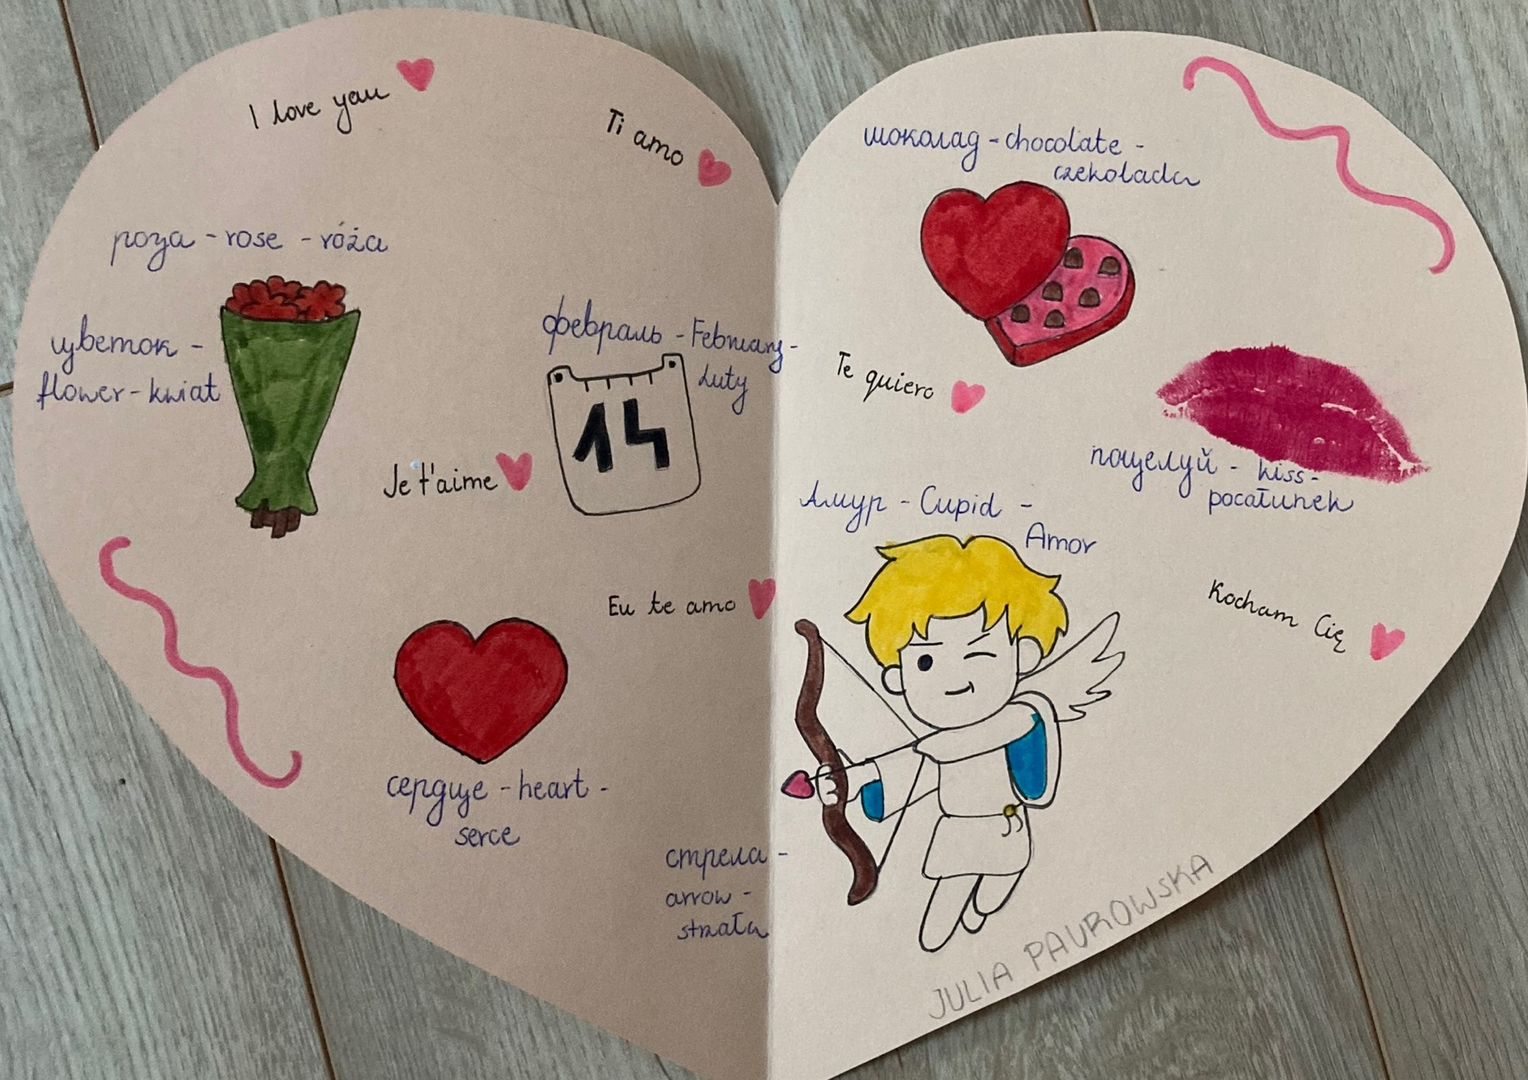 I love you
Ti amo
роза - rose - róża
цветок -
flower - kwiat
февраль - February -
luty
14
Je t'aime
Eu te amo
сердце - heart -
serce
стрела -
arrow -
strzała
шоколад - chocolate -
czekolada
Te quiero
поцелуй - kiss -
pocałunek
Амур - Cupid -
Amor
Kocham Cię
JULIA PAUROWSKA